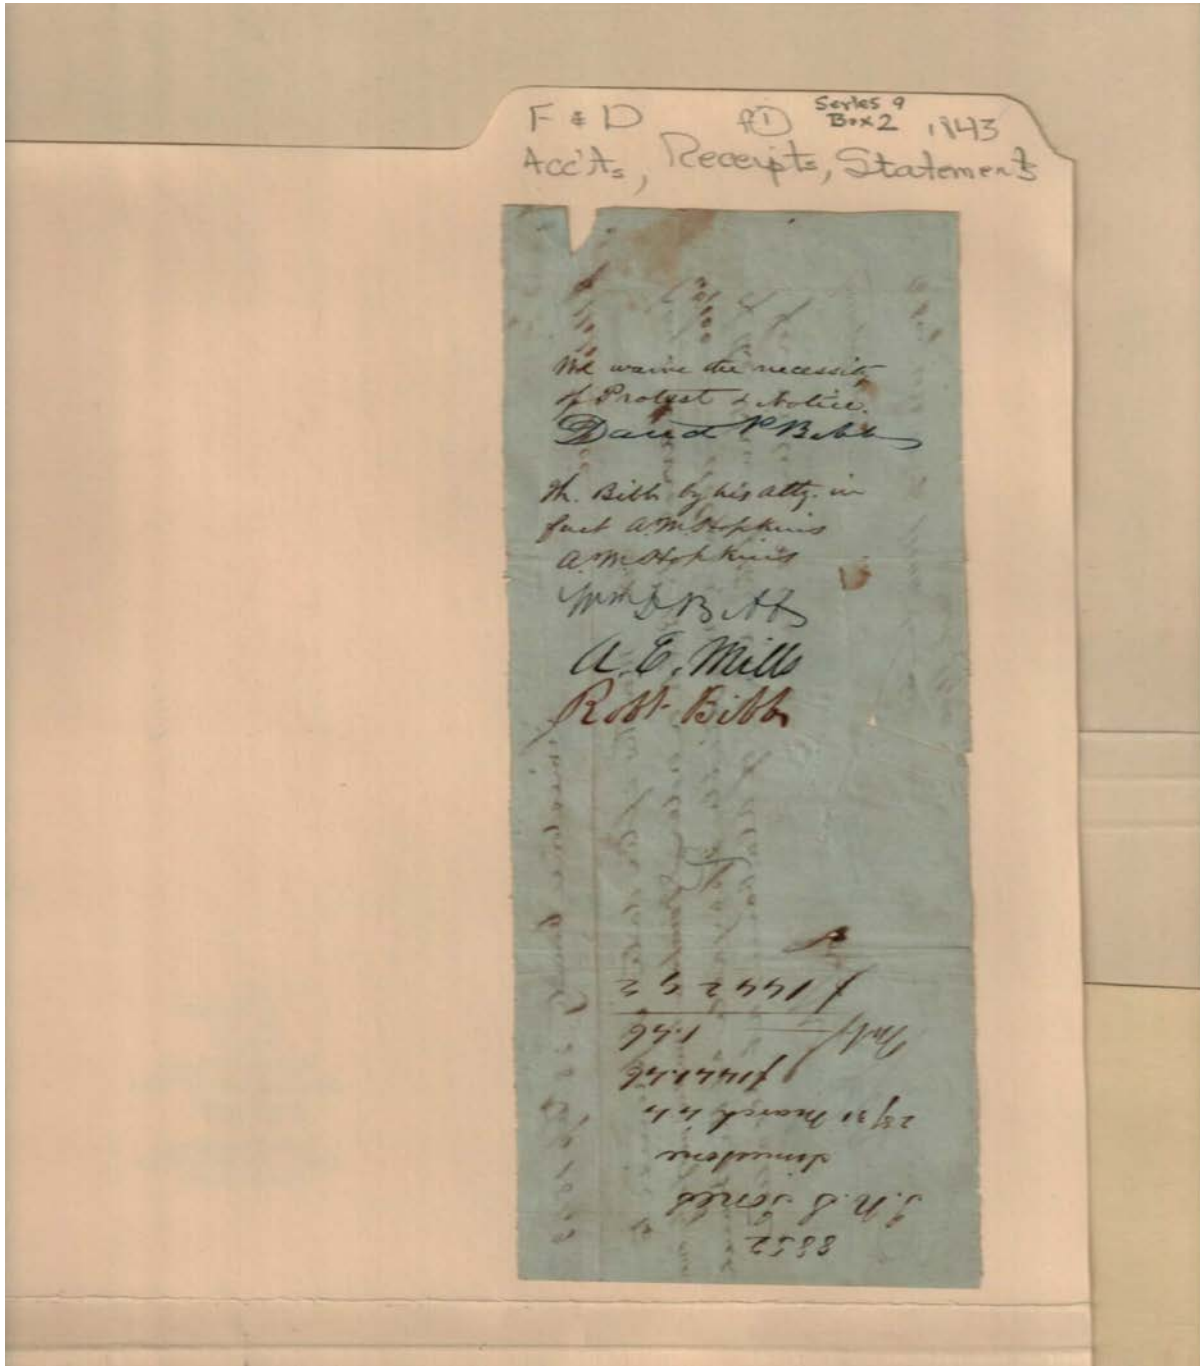 F & D f① Series 9
Box 2 1843
Acc'ts, Receipts, Statements
We waive the necessity
of Protest & Notice.
David P Bibb
Th. Bibb by his atty. in
fact A.M. Hopkins
A.M. Hopkins
Wm D Bibb
A. E. Mills
Robt Bibb
8852
J.N.S. Jones
Limestone
28/31 March
$1441.46
1.46
$1442 92